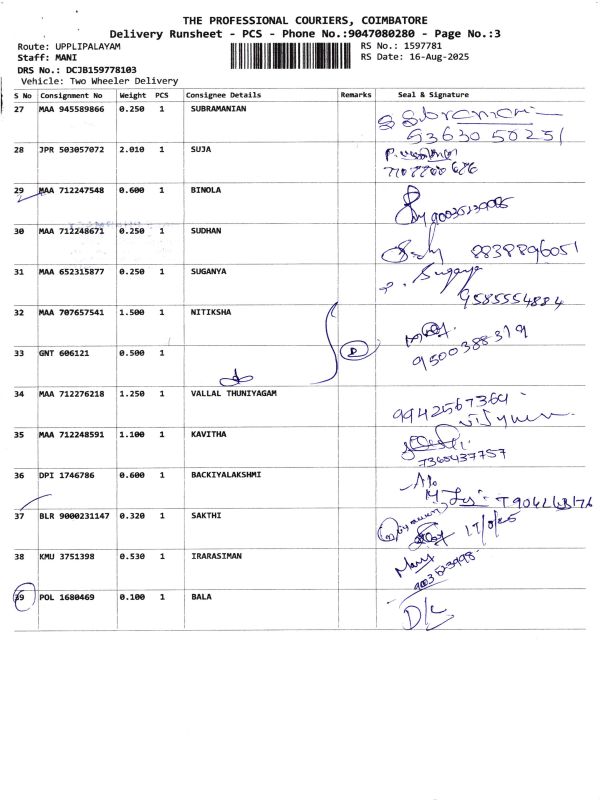 THE PROFESSIONAL COURIERS, COIMBATORE
Delivery Runsheet - PCS - Phone No.:9047080280 - Page No.:3
Route: UPPLIPALAYAM RS No.: 1597781
Staff: MANI RS Date: 16-Aug-2025
DRS No.: DCJB159778103
Vehicle: Two Wheeler Delivery
S No Consignment No Weight PCS Consignee Details Remarks Seal & Signature
27 MAA 945589866 0.250 1 SUBRAMANIAN
93630 50251
28 JPR 503057072 2.010 1 SUJA
29 MAA 712247548 0.600 1 BINOLA
30 MAA 712248671 0.250 1 SUDHAN 8838896051
31 MAA 652315877 0.250 1 SUGANYA P. Suganya
9585554884
32 MAA 707657541 1.500 1 NITIKSHA
9500388319
33 GNT 606121 0.500 1 D
34 MAA 712276218 1.250 1 VALLAL THUNIYAGAM 9942567364
35 MAA 712248591 1.100 1 KAVITHA
7365437757
36 DPI 1746786 0.600 1 BACKIYALAKSHMI
37 BLR 9000231147 0.320 1 SAKTHI
38 KMU 3751398 0.530 1 IRARASIMAN
39 POL 1680469 0.100 1 BALA D/L